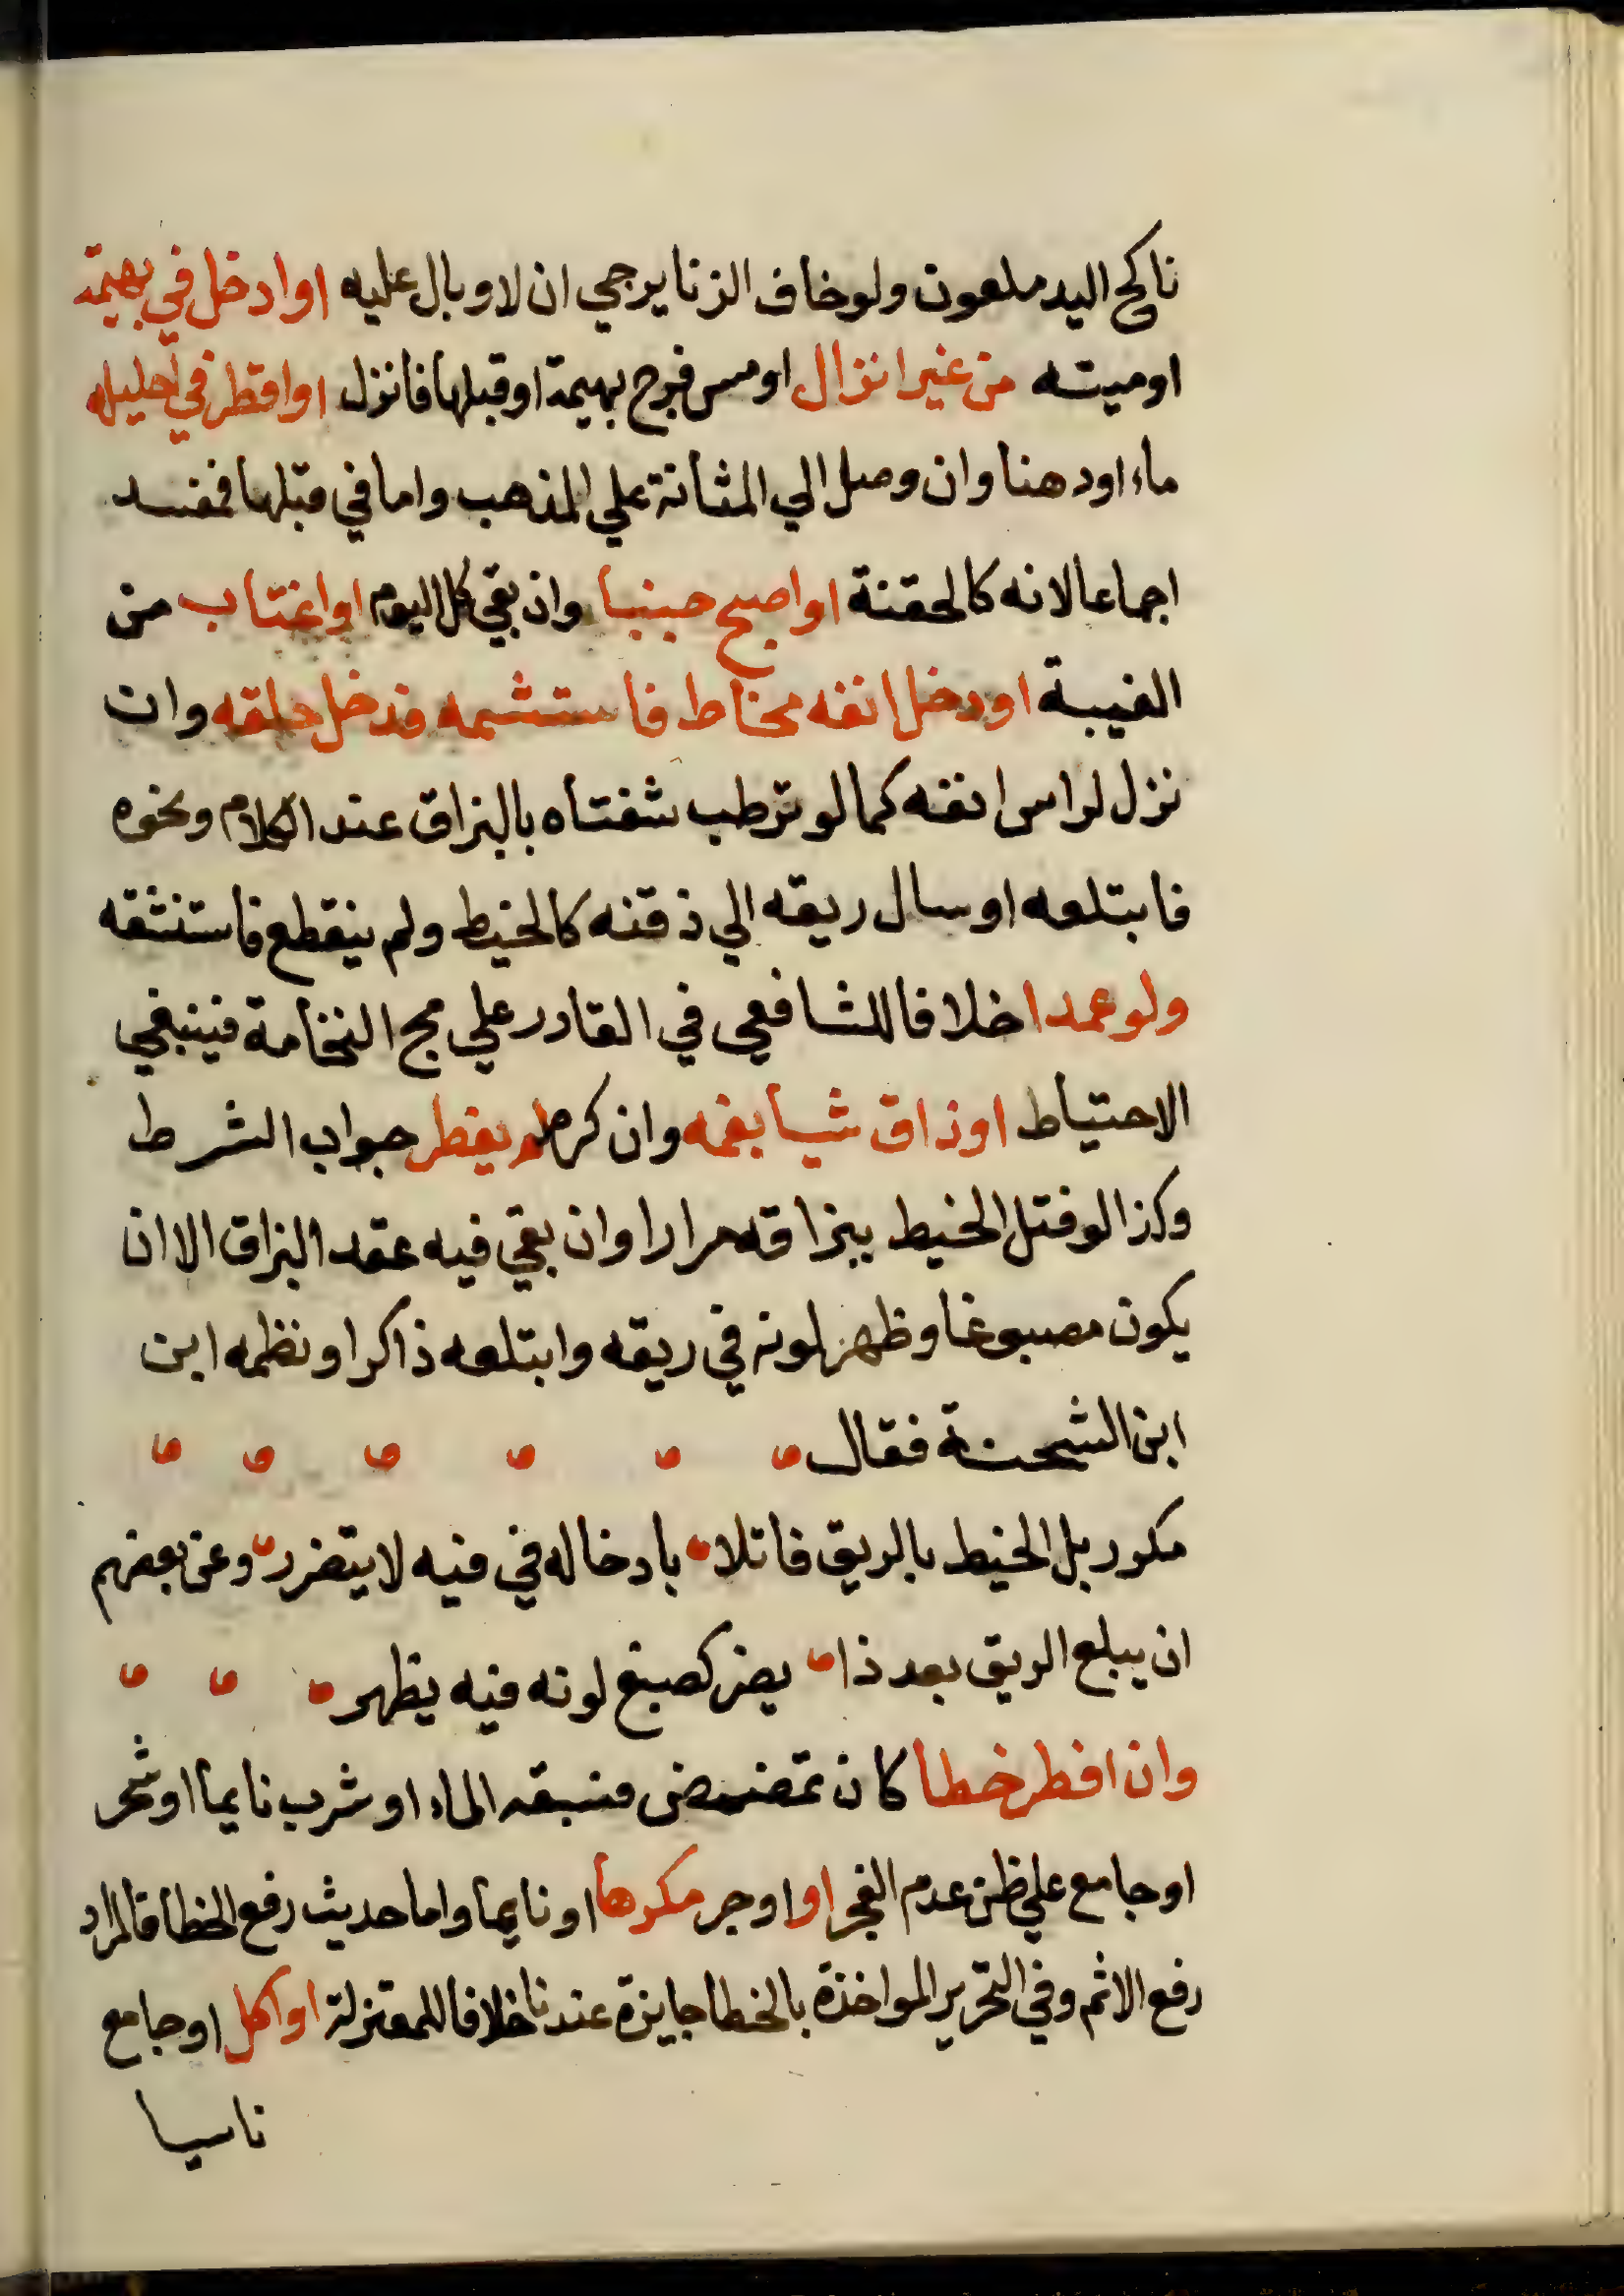 ناكح اليد ملعون ولو خاف الزنا يرجي ان لا وبال عليه او ادخل في بهيمة
او ميتة من غير انزال او مس فرج بهيمة او قبلها فانزل او اقطر في احليله
ماء او دهنا وان وصل الي المثانة علي المذهب واما في قبلها فمفسد
اجماعا لانه كالحقنة او اصبح جنبا وان بقي كل اليوم او اغتاب من
الغيبة او دخل انفه مخاط فاستشمه فدخل حلقه وان
نزل لراس انفه كما لو ترطب شفتاه بالبزاق عند الكلام ونحوه
فابتلعه او سال ريقه الي ذقنه كالخيط ولم ينقطع فاستنشقه
ولو عمدا خلافا للشافعي في القادر علي مج النخامة فينبغي
الاحتياط او ذاق شيا بفمه وان كره لم يفطر جواب الشرط
وكذا لو فتل الخيط ببزاقه مرارا وان بقي فيه عقد البزاق الا ان
يكون مصبوغا وظهر لونه في ريقه وابتلعه ذاكرا ونظمه ابن
ابن الشحنة فقال
مكرر بل الخيط بالريق فاتلا بادخاله في فيه لا يتضرر وعن بعضهم
ان يبلع الريق بعد ذا يضر كصبغ لونه فيه يظهر
وان افطر خطا كان تمضمض فسبقه الماء او شرب نايما او تسحر
او جامع علي ظن عدم الفجر او اوجر مكرها او نايما واما حديث رفع الخطا فالمراد
رفع الاثم وفي التحرير المواخذة بالخطا جايزة عندنا خلافا للمعتزلة او اكل او جامع
ناسيا